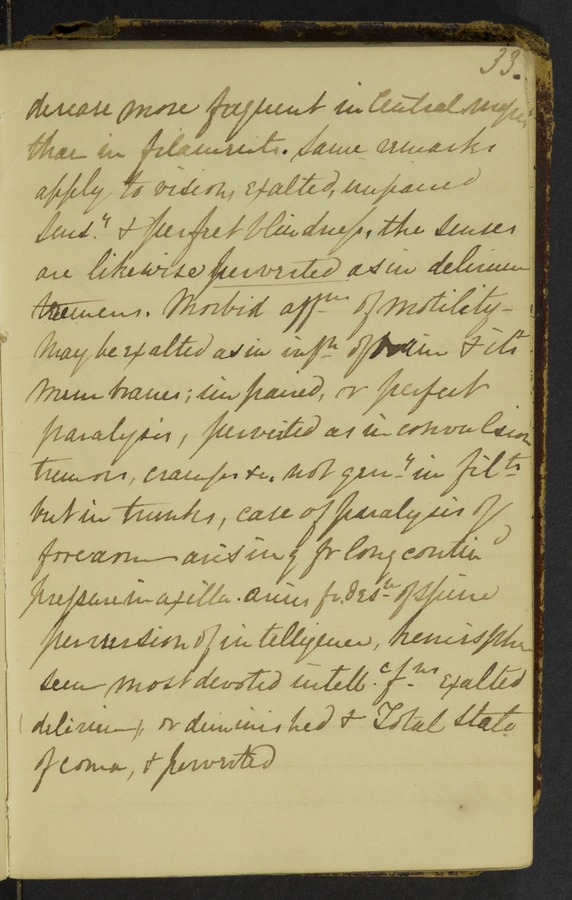 33.
disease more frequent in Central
than in filaments. Same remarks
apply to vision, exalted, impaired
Sens.y & perfect blindness, the senses
are likewise perverted as in delirium
tremens. Morbid affns of motility -
May be exalted as in infn of brain & its
membranes; impaired, or perfect
paralysis, perverted as in convulsion
tremors, cramps &c. not gen.y in filts
but in trunks, case of paralysis of
forearm arising fr long contind
pressure in axilla. arises fr. of spine
perversion of intelligence, hemisphe
seem most devoted intell. fns exalted
delirium), or diminished & Total State
of coma, & perverted